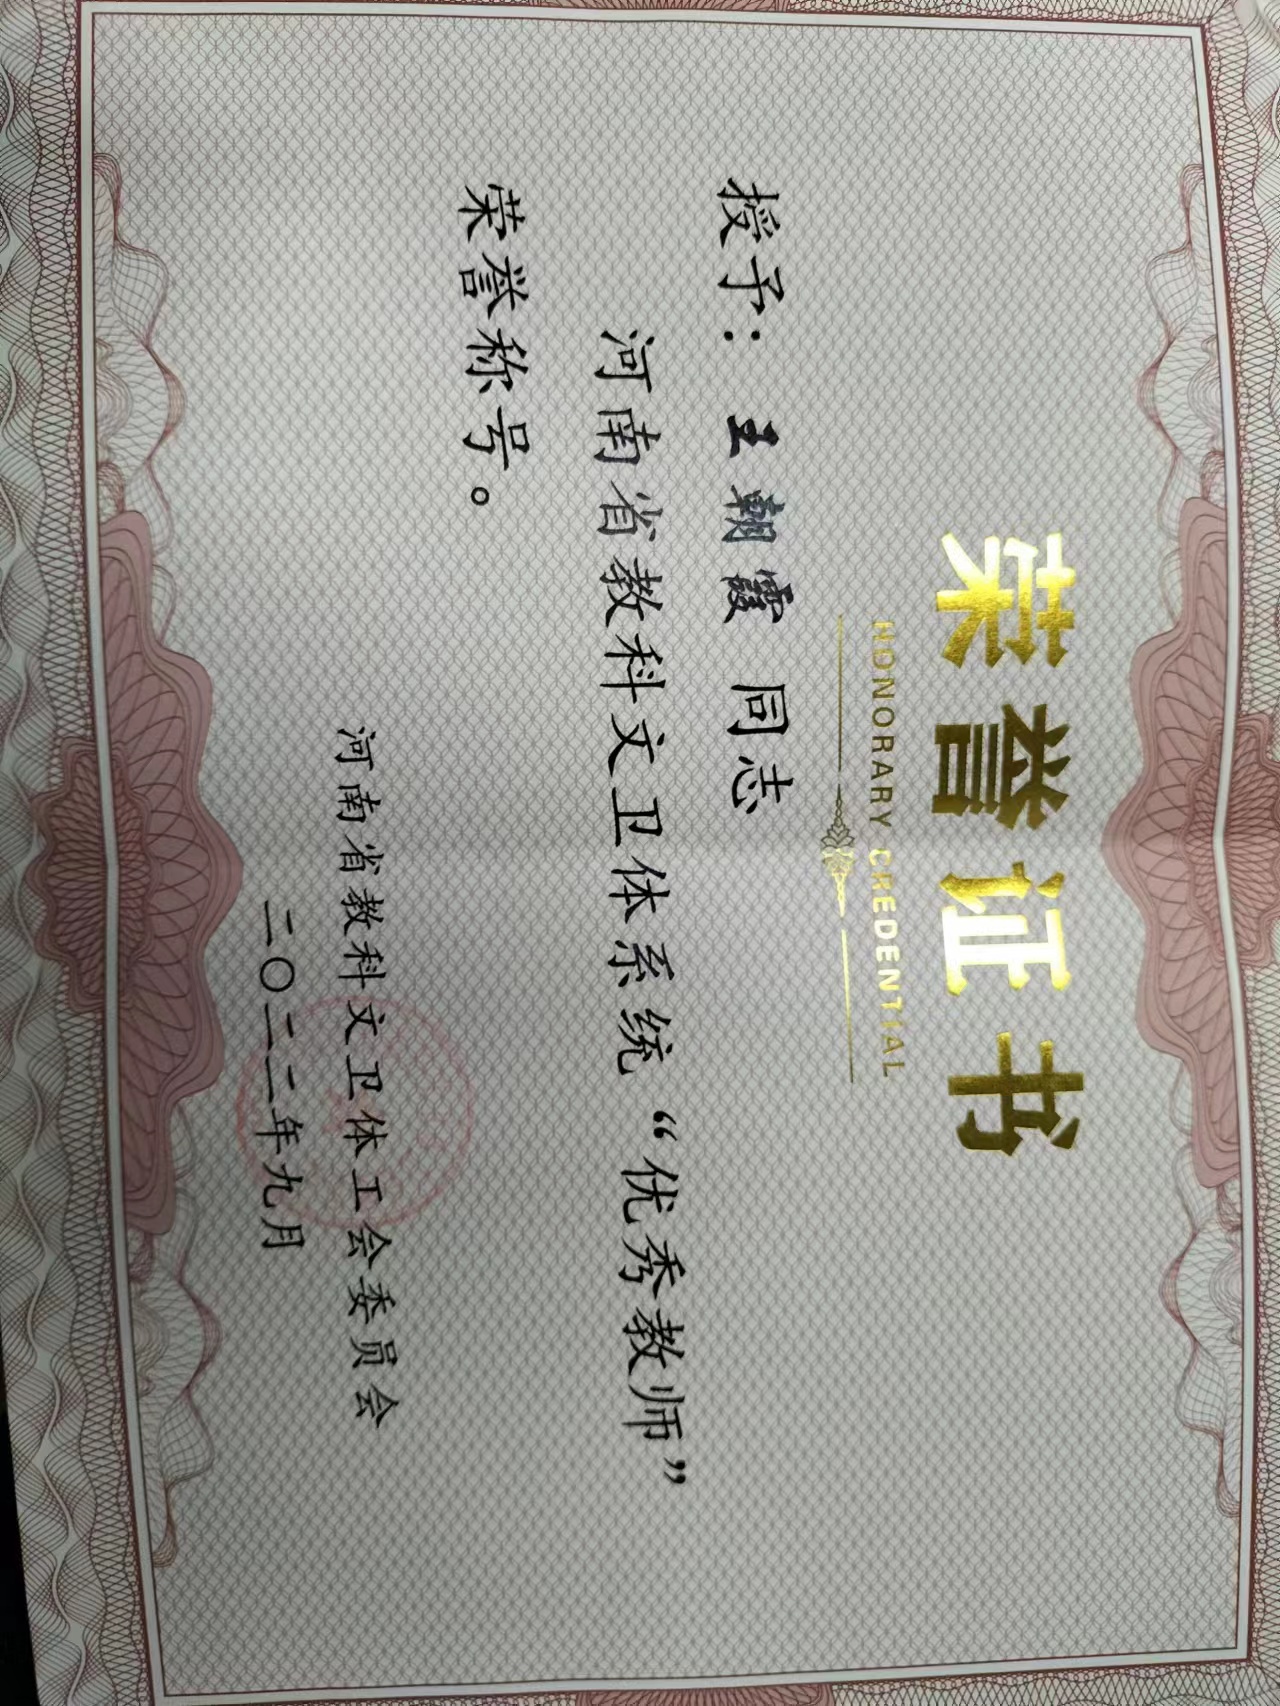 荣誉证书
HONORARY CREDENTIAL
授予：王朝霞 同志
河南省教科文卫体系统“优秀教师”
荣誉称号。
河南省教科文卫体工会委员会
二〇二二年九月